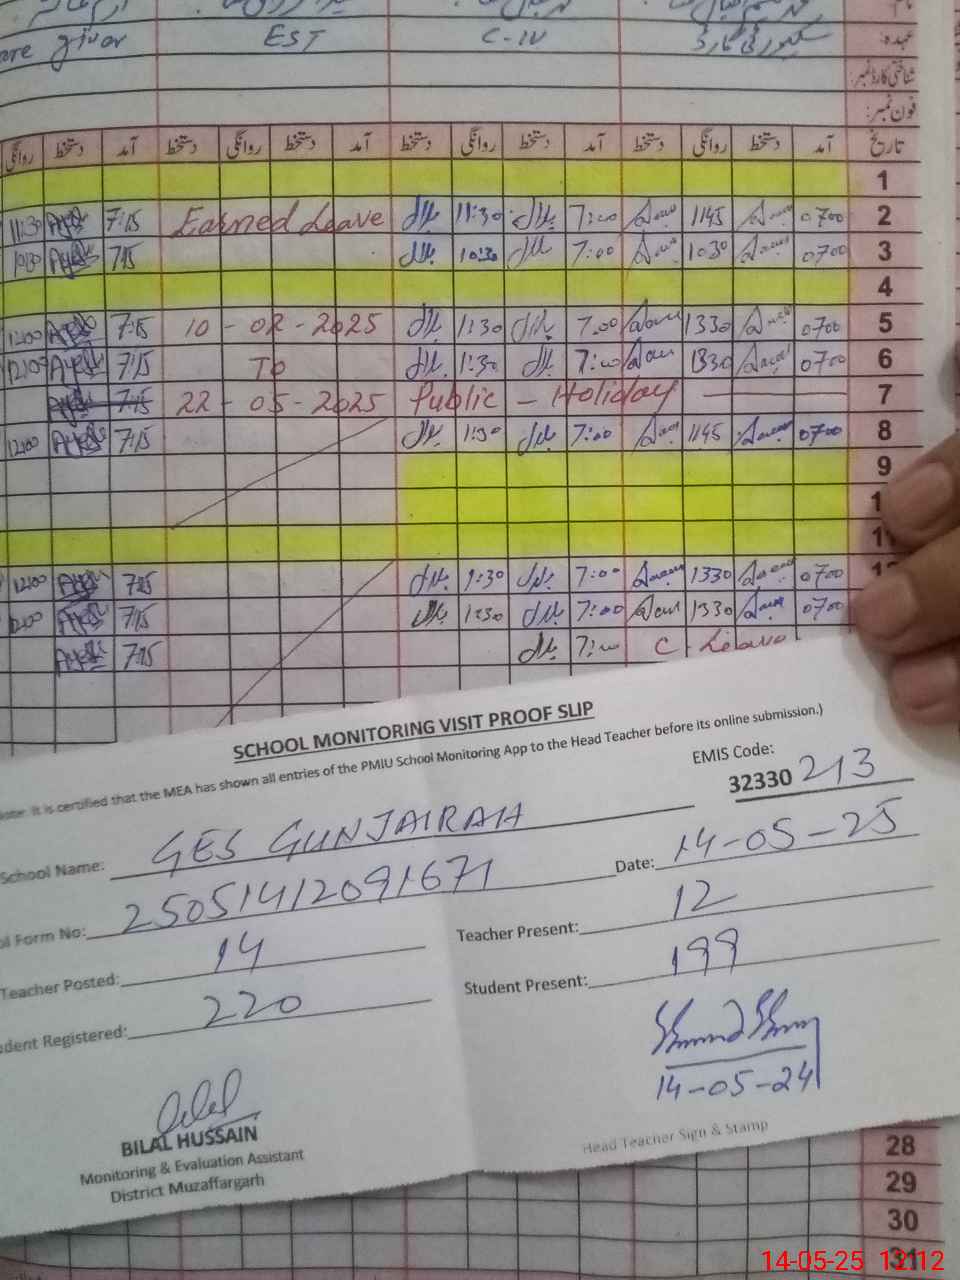 are giver EST C-IV سکیورٹی گارڈ عہدہ:
شناختی کارڈ نمبر:
فون نمبر:
روانگی دستخط آمد دستخط روانگی دستخط آمد دستخط روانگی دستخط آمد دستخط روانگی دستخط آمد تاریخ
1
11:30 7:15 Earned Leave بلال 11:30 بلال 7:00 1145 0700 2
7:15 بلال 10:30 بلال 7:00 1030 0700 3
4
1200 7:15 10 - 02 - 2025 بلال 1:30 بلال 7:00 1330 0700 5
7:15 To بلال 1:30 بلال 7:00 1330 0700 6
7:15 22 - 05 - 2025 Public - Holiday 7
1200 7:15 بلال 1:30 بلال 7:00 1145 0700 8
9
1
11
1200 7:15 بلال 1:30 بلال 7:00 1330 0700
7:15 بلال 1:30 بلال 7:00 1330 0700
7:15 بلال 7:00 C. Leave
SCHOOL MONITORING VISIT PROOF SLIP
Note: It is certified that the MEA has shown all entries of the PMIU School Monitoring App to the Head Teacher before its online submission.)
EMIS Code:
32330 213
School Name: GES GUNJAIRAH
Date: 14-05-25
ol Form No: 25051412091671
Teacher Present: 12
Teacher Posted: 14
Student Present: 199
dent Registered: 220
14-05-24
BILAL HUSSAIN
Monitoring & Evaluation Assistant
District Muzaffargarh
Head Teacher Sign & Stamp
28
29
30
31
14-05-25 12:12